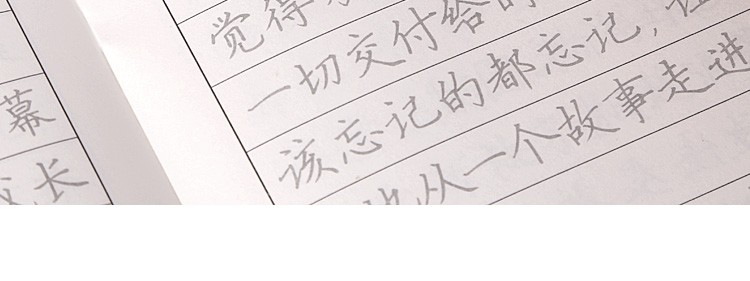 幕
长
觉得
一切交付给
该忘记的都忘记，
从一个故事走进